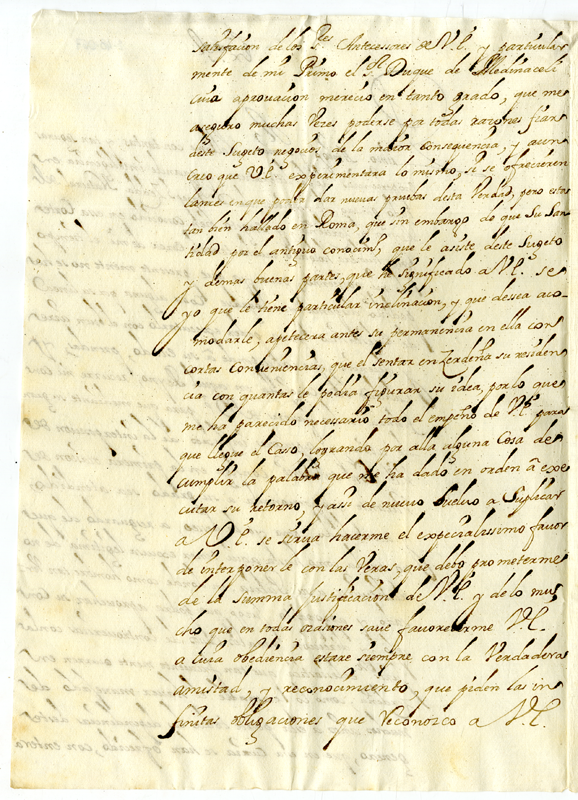 satisfacion de los S.res Antecessores de V.E. y particular
mente de mi Primo el S.r Duque de Medinaceli
cuia aprovacion merecio en tanto grado, que me
aseguro muchas Vezes poderse por todas razones fiar
deste Sugeto negocios de la maior consequencia, y aun
Creo que V.E. experimentara lo mismo, si se ofrecieren
lances en que poder dar nuevas pruebas desta Verdad, pero esta
tan bien hallado en Roma, que sin embargo de que Su San
tidad por el antiguo conocim.to que le asiste deste Sugeto
y demas buenas partes, que ha significado a V.E. se
yo que le tiene particular inclinacion, y que desea aco-
modarle, apetecera antes su permanencia en ella con
cortas Conveniencias, que el sentar en Zerdeña su residen
cia con quantas le podia figurar su idea, por lo que
me ha parecido necessario todo el empeño de V.E. para
que llegue el Casso, logrando por alla alguna Cosa de
cumplir la palabra que me ha dado en orden a exe
cutar su retorno, y assi de nuevo buelvo a Suplicar
a V.E. se sirva hacerme el especialissimo favor
de interponerle con las Veras, que debo prometerme
de la Summa Justificacion de V.E. y de lo mu
cho que en todas ocasiones save favorecerme V.E.
a cuia obediencia estare siempre con la Verdadera
amistad, y reconocimiento, que piden las in
finitas obligaciones que reconozco a V.E.